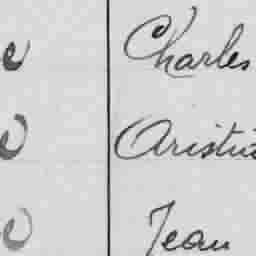 e Charles
Aristi
Jean